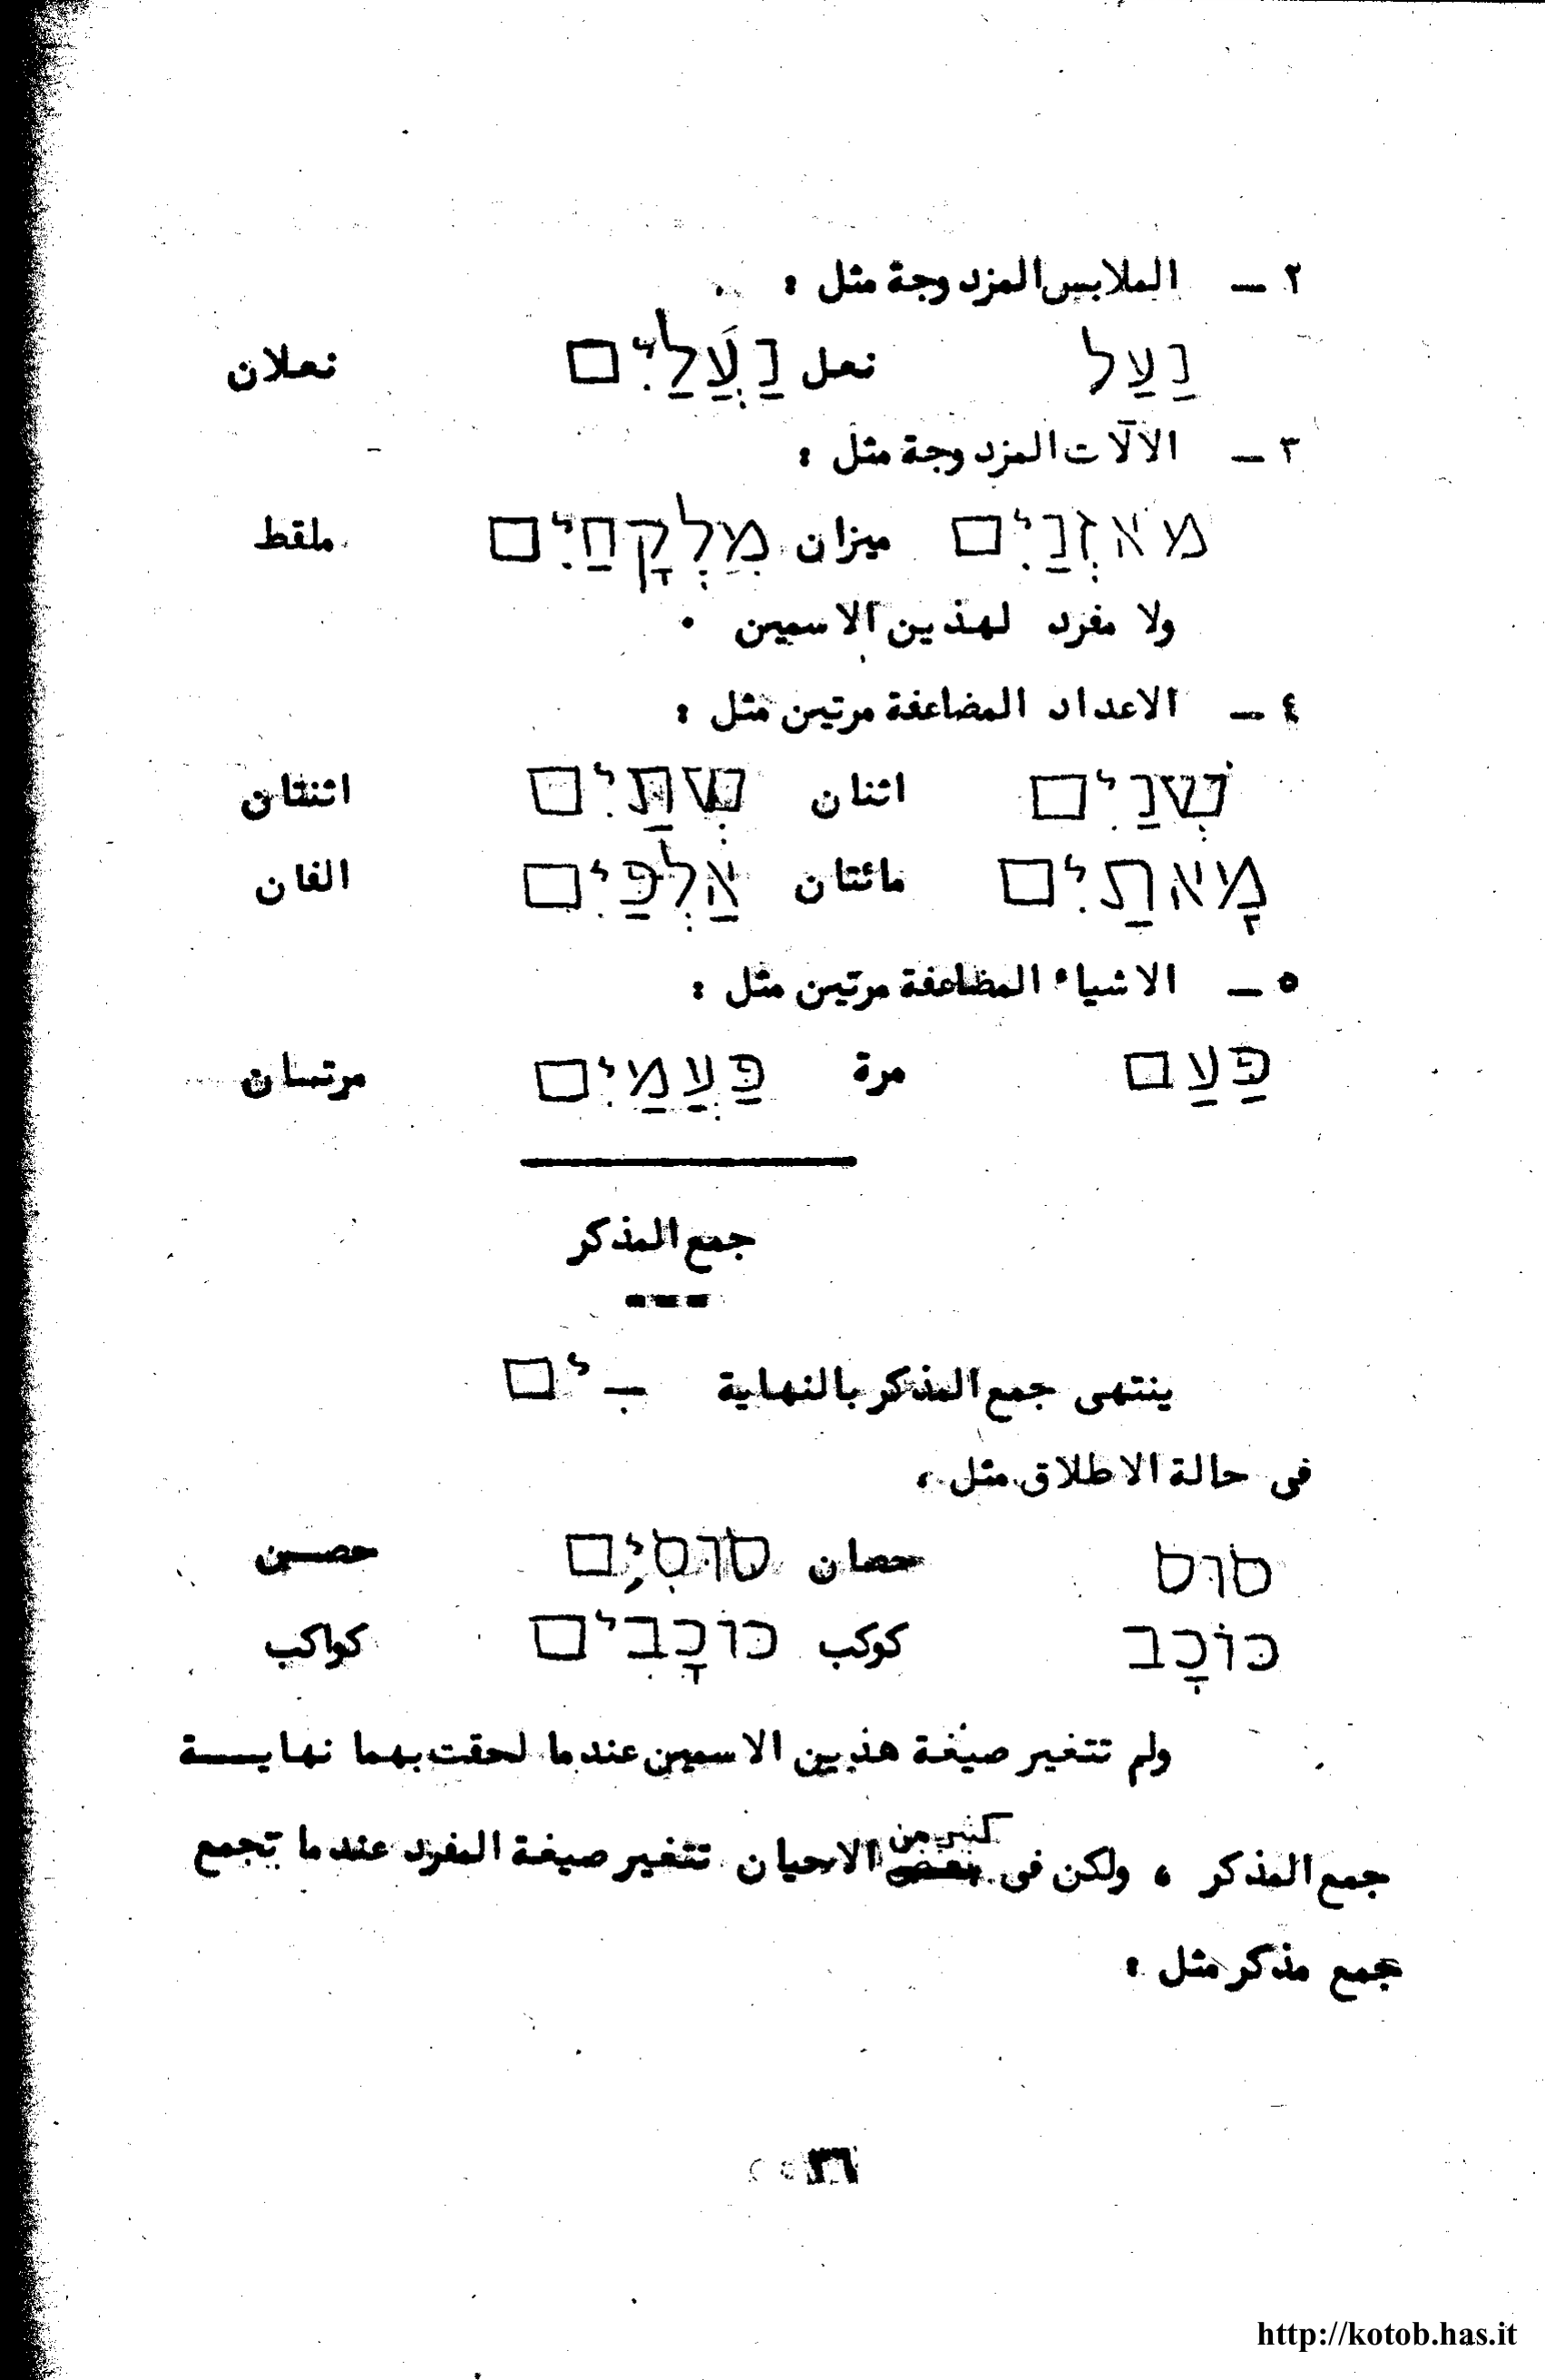 ٢ ــ الملابس المزدوجة مثل :
נַעַל نعل נַעֲלַיִם نعلان
٣ ــ الآلات المزدوجة مثل :
מאזְנַיִם ميزان מִלְקָחַיִם ملقط
ولا مفرد لهذين الاسمين .
٤ ــ الاعداد المضاعفة مرتين مثل :
שְׁנַיִם اثنان שְׁתַּיִם اثنتان
מָאתַיִם مائتان אַלְפַּיִם الفان
٥ ــ الاشياء المضاعفة مرتين مثل :
פַּעַם مرة פַּעֲמַיִם مرتسان
جمع المذكر
ينتهى جمع المذكر بالنهاية ـִ ים
فى حالة الاطلاق مثل ،
סוּס حصان סוּסִים حصــين
כּוֹכָב كوكب כּוֹכָבִים كواكب
ولم تتغير صيغة هذين الاسمين عندما لحقت بهما نهايـــة
جمع المذكر ، ولكن فى كثير من الاحيان تتغير صيغة المفرد عندما تجمع
جمع مذكر مثل :
٣٦
http://kotob.has.it